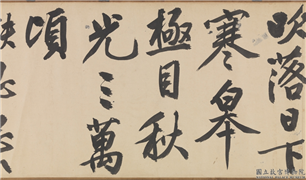 吹落日下
寒皋
極目秋
光三萬
頃
國立故宮博物院